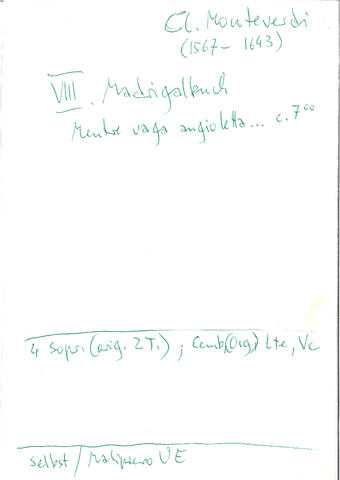 Cl. Monteverdi
(1567 – 1643)
VIII. Madrigalbuch
Mentre vaga angioletta... c. 7'00
4 Sopr. (orig. 2 T.) ; Cemb(Org) Lte, Vc
selbst / Malipiero UE